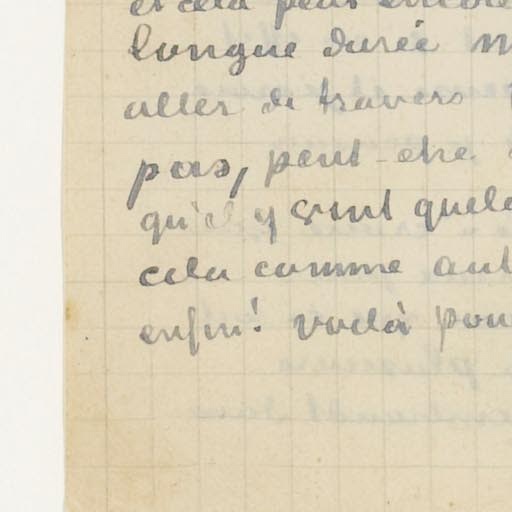 et cela peut encore
longue durée
aller de travers
pas, peut-etre
qu'il y
cela comme
enfin! voilà pour